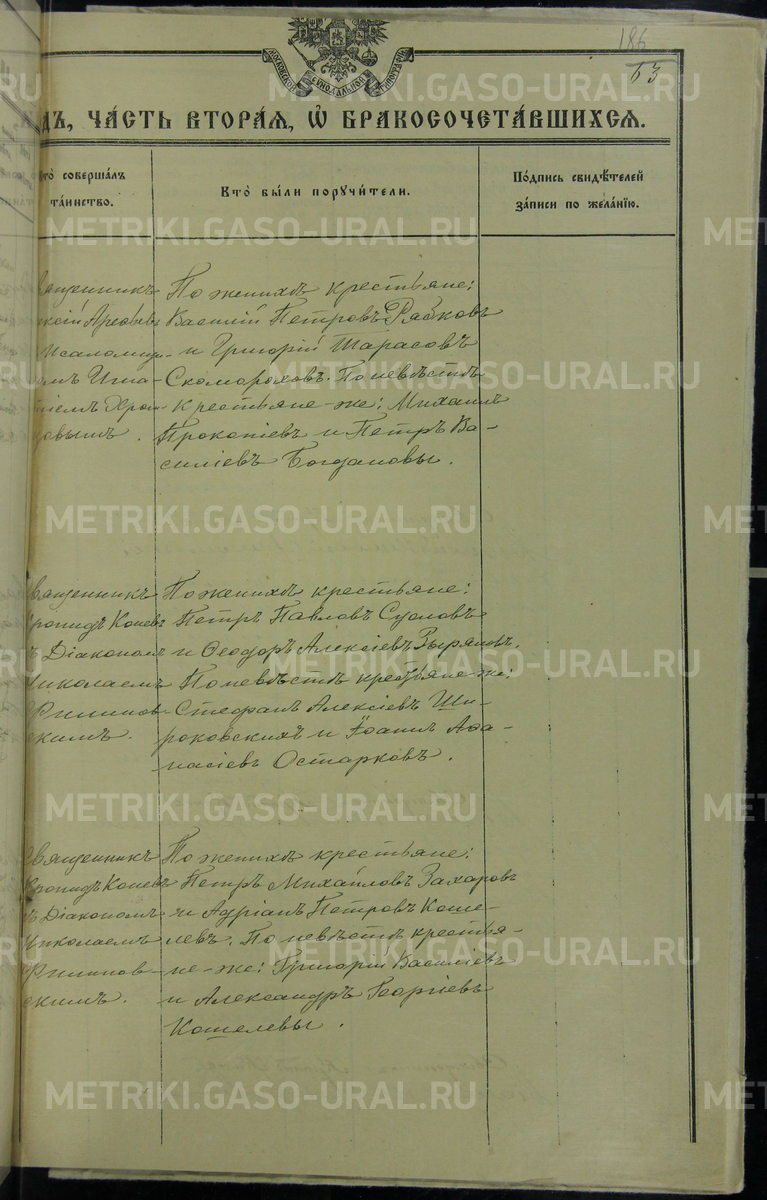 186
53
МОСКОВСКОЙ СѴНОДАЛЬНОЙ ТИПОГРАФІИ
дъ, ча́сть втора́я, ѽ бракосочета́вшихся.
Кто̀ соверша́лъ
та́инство.
Кто̀ бы́ли поручи́тели.
По́дпись свидѣ́телей
за́писи по жела́нїю.
священникъ
Арефьев
Псаломщи-
комъ Игна-
тіемъ Хром-
цовымъ.
По женихѣ крестьяне:
Василій Петровъ Рябковъ
и Григорій Тарасовъ
Скоморохов. По невѣстѣ
крестьяне-же: Михаилъ
Прокопіевъ и Петръ Ва-
силіевъ Богдановы.
Священникъ
Кронидъ Коневъ
съ Діакономъ
Николаемъ
Филипов-
скимъ.
По женихѣ крестьяне:
Петръ Павловъ Сусловъ
и Ѳеодоръ Алексіевъ Зыряновъ.
По невѣстѣ крестьяне-же:
Стефанъ Алексіевъ Ши-
роковскихъ и Іоаннъ Аѳа-
насіевъ Остарковъ.
Священникъ
Кронидъ Коневъ
съ Діакономъ
Николаемъ
Филипов-
скимъ.
По женихѣ крестьяне:
Петръ Михайловъ Захаровъ
и Адріанъ Петровъ Коше-
левъ. По невѣстѣ крестья-
не-же: Григорій Василіевъ
и Александръ Георгіевъ
Кошелевы.
METRIKI.GASO-URAL.RU